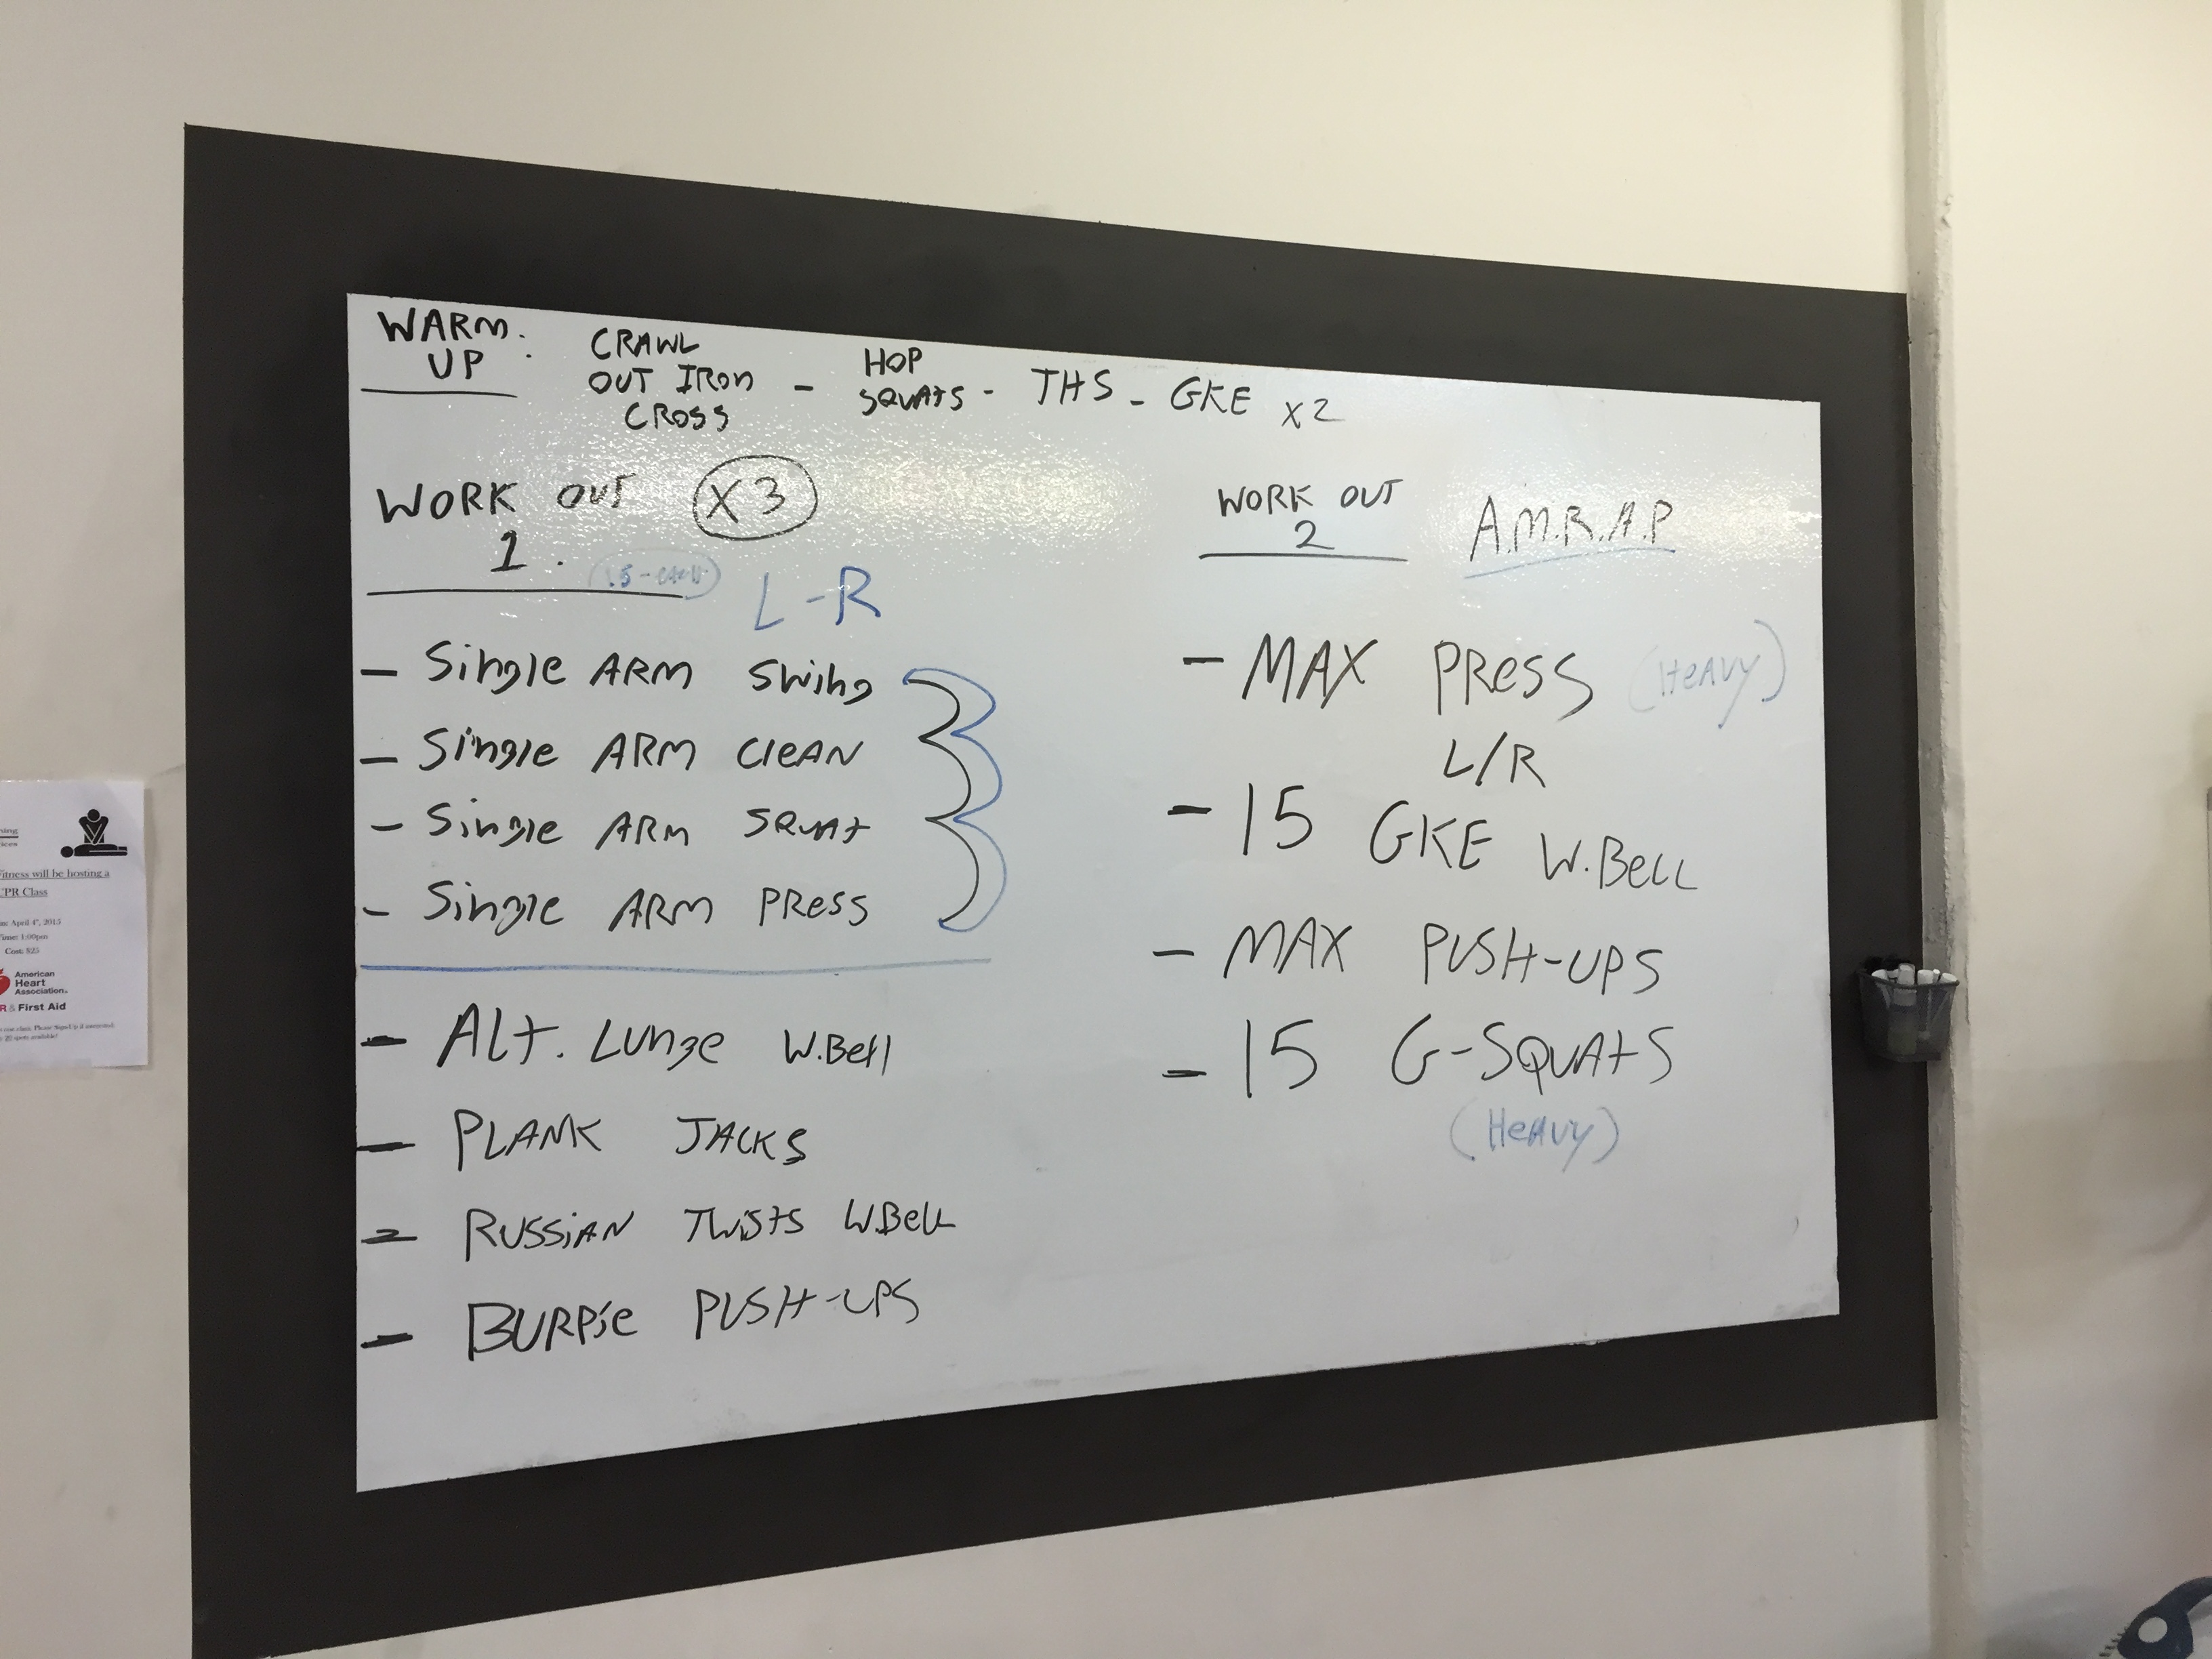 WARM:
UP
CRAWL
OUT IRON
CROSS
-
HOP
SQUATS - THS - GKE x2
WORK OUT X3
1.
15-EACH
L-R
- Single ARM Swing
- Single ARM CleAN
- Single ARM SQUAt
- Single ARM PRess
- Alt. Lunge W.Bell
- PLANK JACKS
- RUSSiAN TWiStS W.BeLL
- BURPie PUSH-UPS
WORK OUT
2
A.M.R.A.P
- MAX PReSS (HeAVY)
L/R
- 15 GKE W.BeLL
- MAX PUSH-UPS
- 15 G-SQUAtS
(HeAVY)
itness will be hosting a
CPR Class
April 4th, 2015
Time: 1:00pm
Cost: $25
American
Heart
Association®
R & First Aid